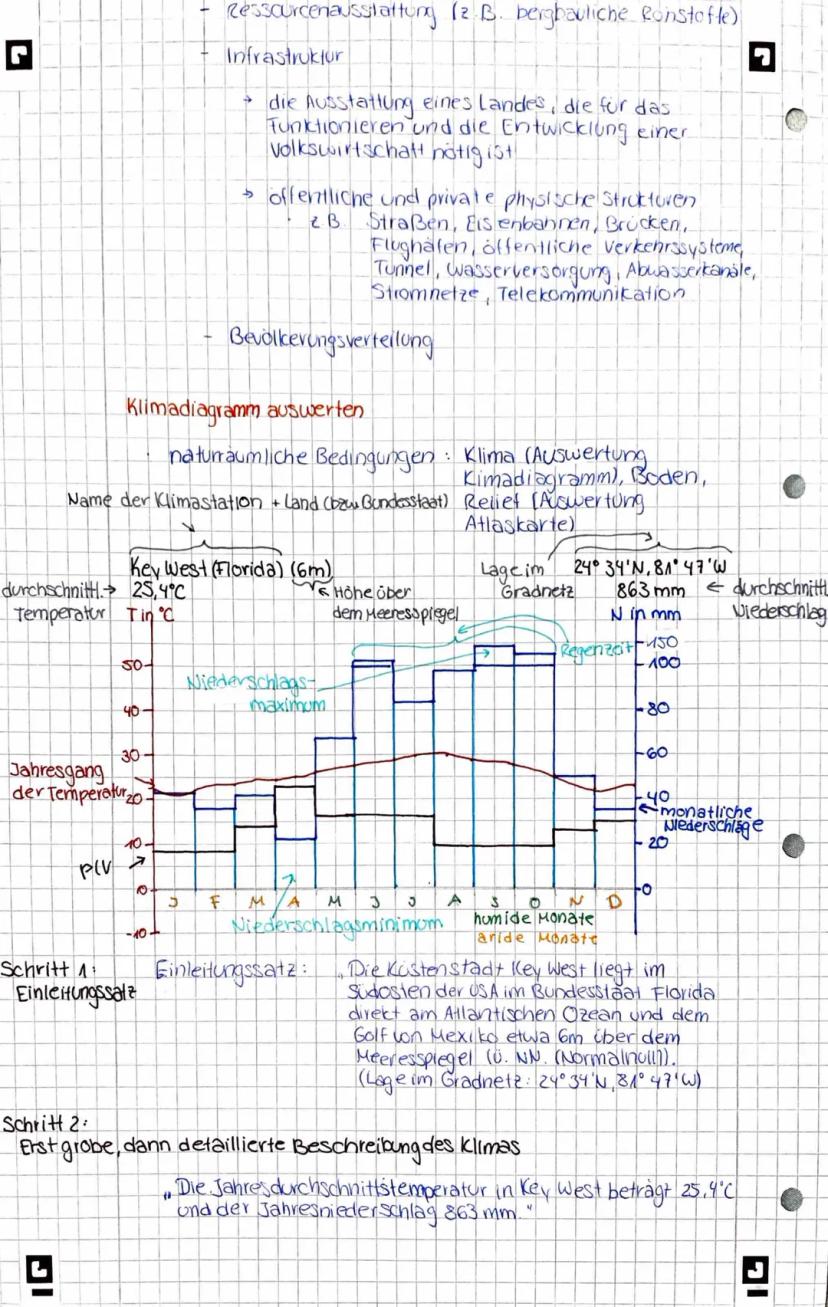 - Ressourcenausstattung (z.B. bergbauliche Rohstoffe)
- Infrastruktur
→ die Ausstattung eines Landes, die für das
Funktionieren und die Entwicklung einer
Volkswirtschaft nötig ist
→ öffentliche und private physische Strukturen
z.B. Straßen, Eisenbahnen, Brücken,
Flughäfen, öffentliche Verkehrssysteme,
Tunnel, Wasserversorgung, Abwasserkanäle,
Stromnetze, Telekommunikation
- Bevölkerungsverteilung
Klimadiagramm auswerten
naturräumliche Bedingungen: Klima (Auswertung
Kimadiagramm), Boden,
Name der Klimastation + Land (bzw Bundesstaat) Relief (Auswertung
Atlaskarte)
Key West (Florida) (6m) Lage im 24° 34'N, 81° 47'W
durchschnittl.→ 25,4°C ↖ Höhe über Gradnetz 863 mm ← durchschnittl
Temperatur T in °C dem Meeresspiegel N in mm Niederschlag
150
Regenzeit
50 100
Niederschlags-
maximum
40 80
30 60
Jahresgang
der Temperatur 20 40
←monatliche
Niederschläge
10 20
pLV
0 0
J F M A M J J A S O N D
Niederschlagsminimum humide Monate
-10 aride Monate
Schritt 1: Einleitungssatz: „Die Küstenstadt Key West liegt im
Einleitungssatz Südosten der USA im Bundesstaat Florida
direkt am Atlantischen Ozean und dem
Golf von Mexiko etwa 6m über dem
Meeresspiegel (ü. NN. (Normalnull)).
(Lage im Gradnetz: 24° 34'N, 81° 47'W)
Schritt 2:
Erst grobe, dann detaillierte Beschreibung des Klimas
„Die Jahresdurchschnittstemperatur in Key West beträgt 25,4°C
und der Jahresniederschlag 863 mm."